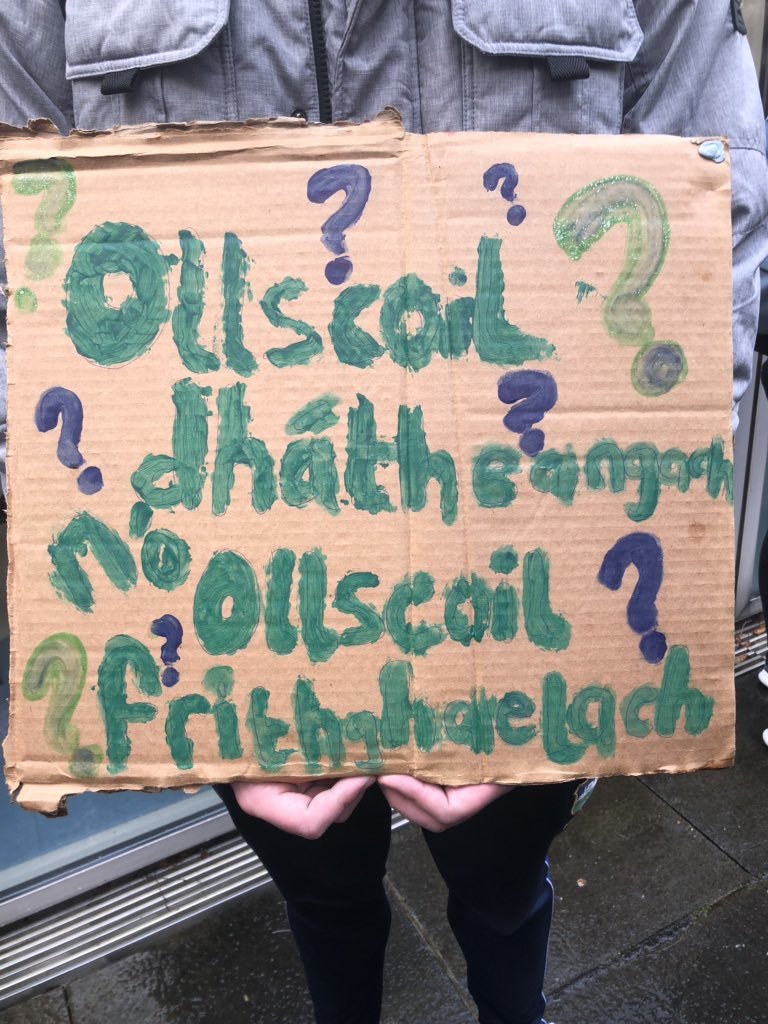 Ollscoil
dhátheangach
nó Ollscoil
frithghaelach